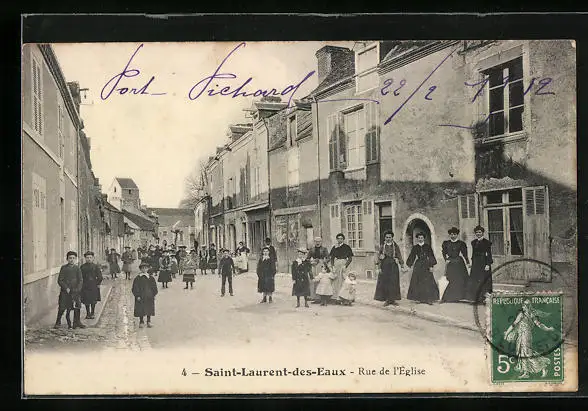 Port-Pichard 22/2 1912
4 - Saint-Laurent-des-Eaux - Rue de l'Église
REPUBLIQUE FRANÇAISE
5c
POSTES